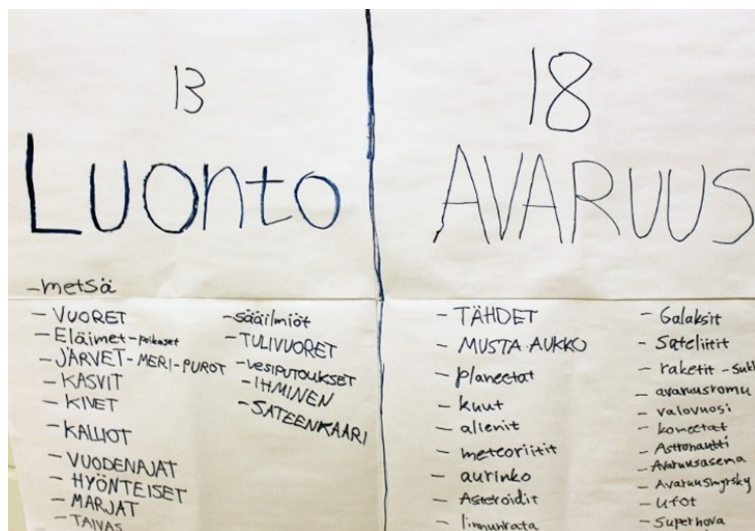 13
Luonto
-metsä
- VUORET
- Eläimet-poikaset
- JÄRVET-MERI-PUROT
- KASVIT
- KIVET
- KALLIOT
- VUODENAJAT
- HYÖNTEISET
- MARJAT
- TAIVAS
-sääilmiöt
- TULIVUORET
- vesiputoukset
- IHMINEN
- SATEENKAARI
18
AVARUUS
- TÄHDET
- MUSTA AUKKO
- planeetat
- kuut
- alienit
- meteoriitit
- aurinko
- Asteroidit
- linnunrata
- Galaksit
- Sateliitit
- raketit -
- avaruusromu
- valovuosi
- komeetat
- Astronautti
- Avaruusasema
- Avaruusmyrsky
- Ufot
- Supernova